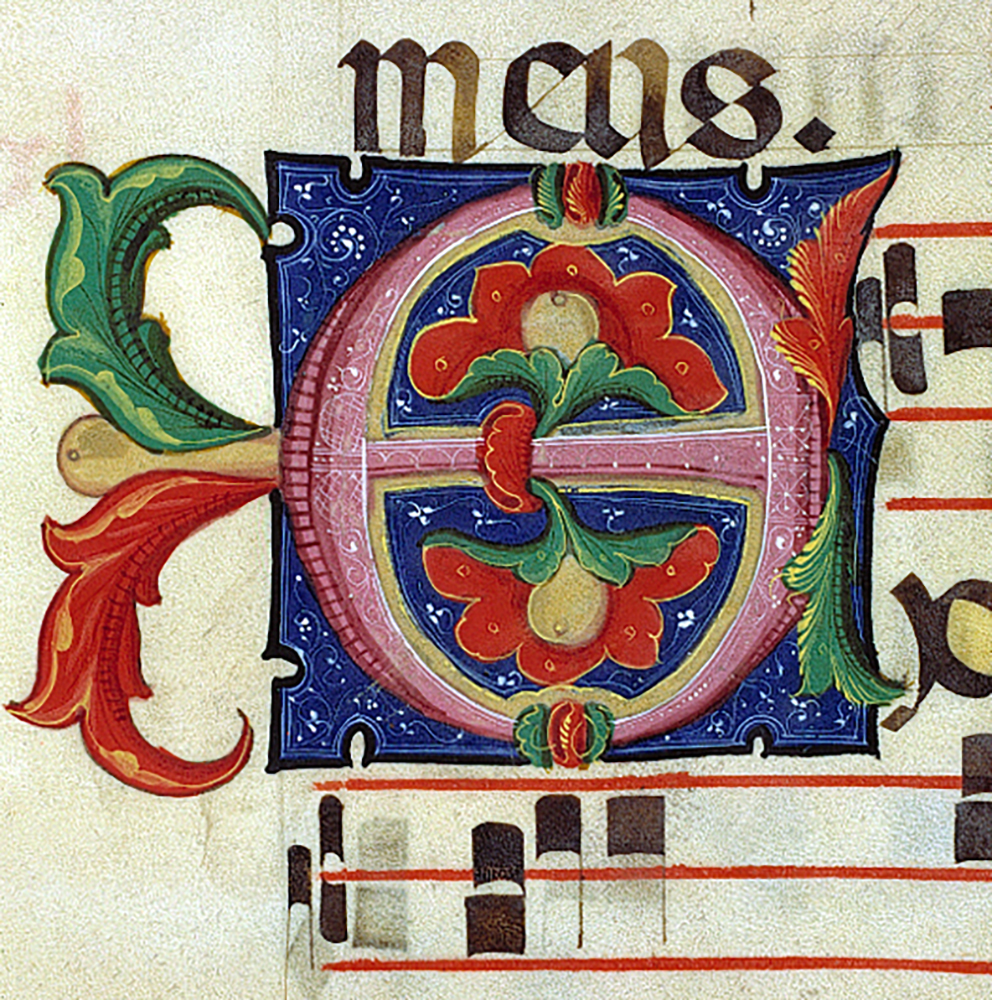 mens.
E